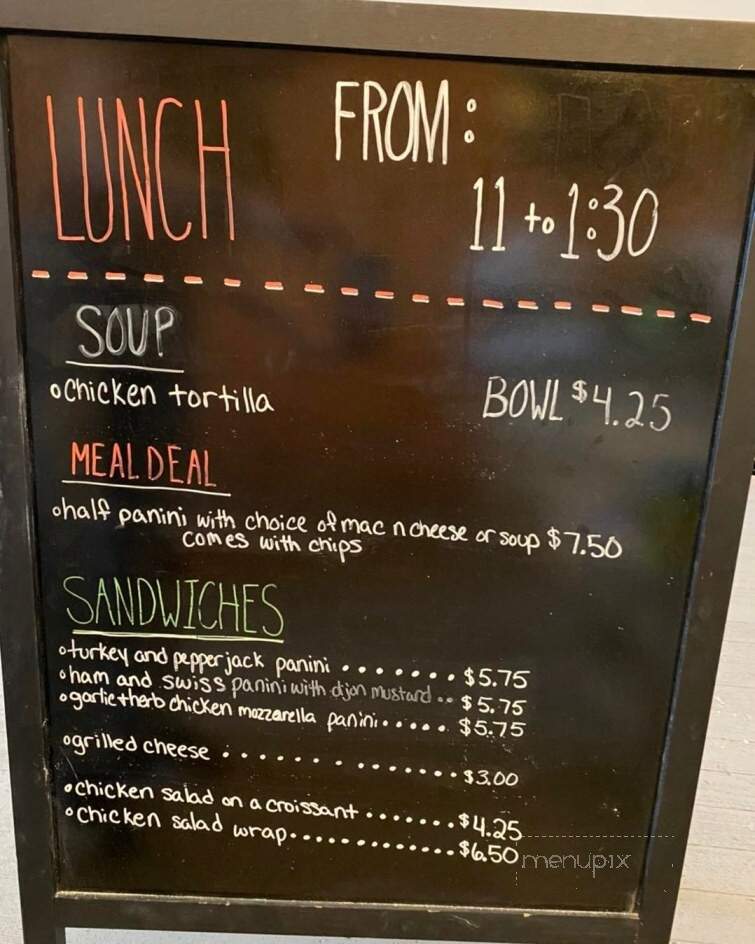 LUNCH
FROM:
11 to 1:30
SOUP
chicken tortilla BOWL $4.25
MEAL DEAL
half panini with choice of mac n cheese or soup $7.50
comes with chips
SANDWICHES
turkey and pepper jack panini ....... $5.75
ham and swiss panini with dijon mustard .. $5.75
garlic+herb chicken mozzarella panini..... $5.75
grilled cheese ............ $3.00
chicken salad on a croissant ....... $4.25
chicken salad wrap............. $6.50
menupix